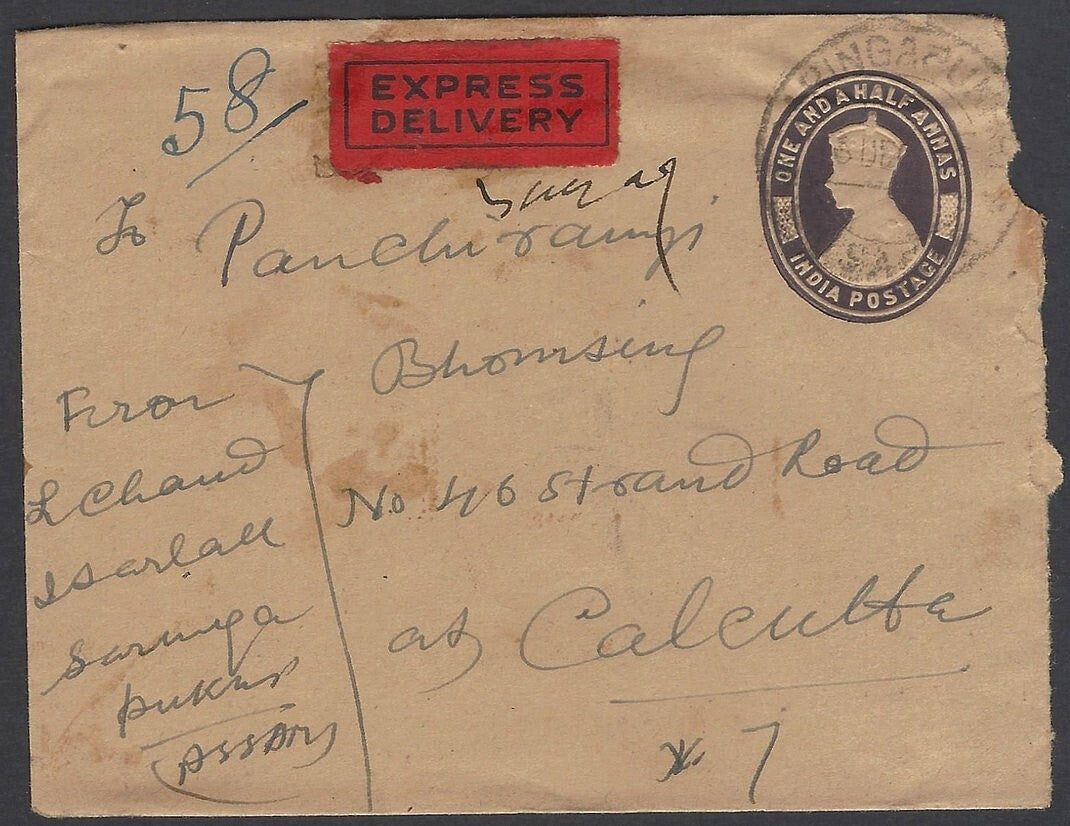 58
EXPRESS
DELIVERY
ONE AND A HALF ANNAS
INDIA POSTAGE
To Panchiramji
Bhomsing
No 46 Strand Road
at Calcutta
7
From
L Chand
Isarlall
Sarunga
pukur
(ASSAM)